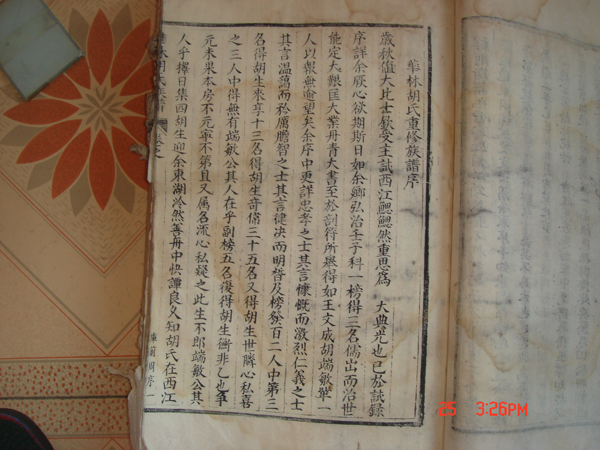 華林胡氏重修族譜序
歲秋值大比士欽受主試西江鰓鰓然重思為 大典光也已於試錄
序詳余厥心欲期斯日如余鄉弘治壬子科一榜得三名儒出而治世
能定大艱匡大業丹青大書至於剖符所舉得如王文成胡端敏輩一
人以報無逾望矣余序中更詳忠孝之士其言慷慨而激烈仁義之士
其言溫藹而矜厲膽智之士其言律決而明晳及榜發百二人中第三
名得胡生來享十三名得胡生奇偹三十五名又得胡生世隣心私喜
之三人中得無有端敏公其人在乎副榜五名復得胡生衝非乙也爭
元未果本房不元寧不第且又屬名流心私疑之此生不即端敏公其
人乎擇日集四胡生迎余東湖泠然善舟中快譚良久知胡氏在西江
陳
周序 一
25 3:26PM